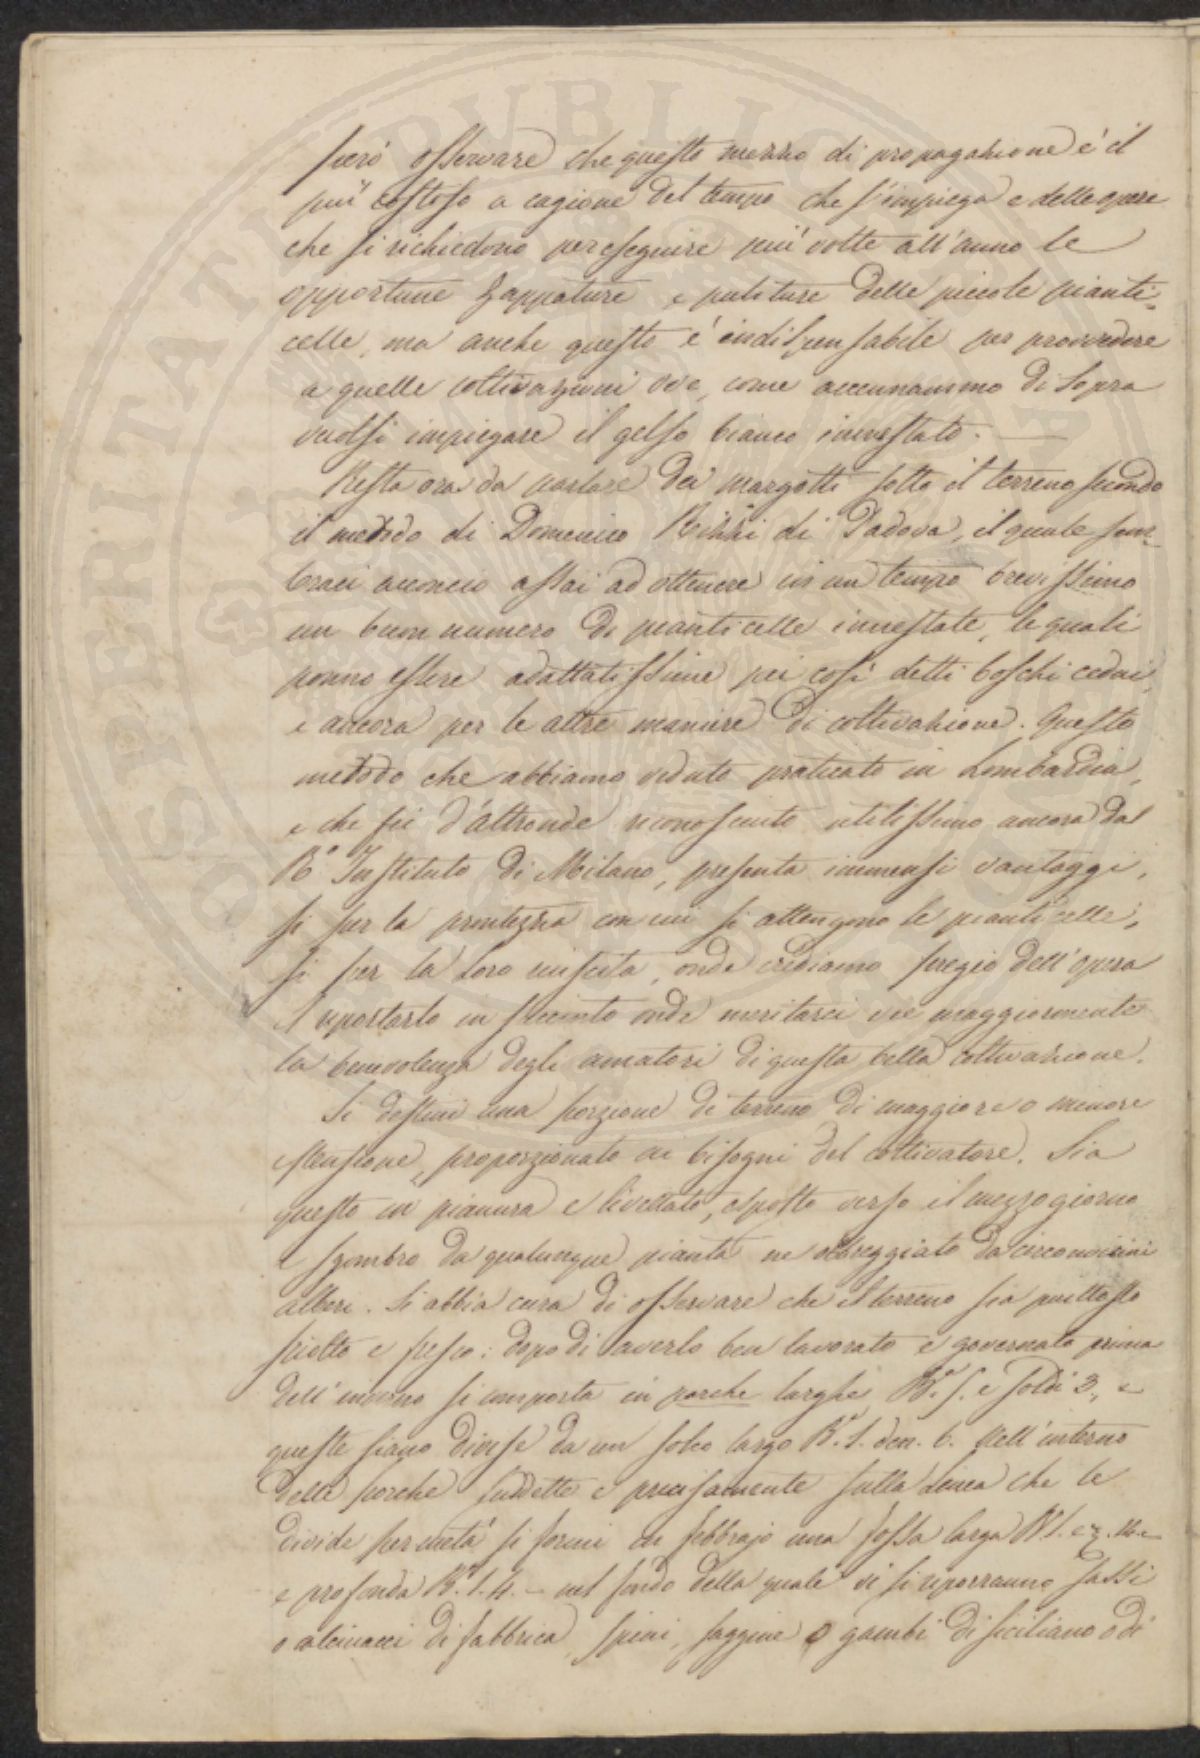 però osservare che questo mezzo di propagazione è il
più costoso a cagione del tempo che s'impiega e delle opere
che si richiedono per eseguire più volte all'anno le
opportune zappature e puliture delle piccole pianti-
celle, ma anche questo è indispensabile per provvedere
a quelle coltivazioni ove, come accennammo di sopra
vuolsi impiegare il gelso bianco innestato.
Resta ora da parlare dei margotti sotto il terreno secondo
il metodo di Domenico Rizzi di Padova, il quale sem-
braci acconcio assai ad ottenere in un tempo brevissimo
un buon numero di pianticelle innestate, le quali
ponno essere adattatissime pei così detti boschi cedui,
e ancora per le altre maniere di coltivazione. Questo
metodo che abbiamo veduto praticato in Lombardia,
e che fù d'altronde riconosciuto utilissimo ancora dal
R.o Instituto di Milano, presenta immensi vantaggi,
si per la prontezza con cui si ottengono le pianticelle,
si per la loro riuscita, onde crediamo pregio dell'opera
il riportarlo in succinto onde meritarci vie maggiormente
la benevolenza degli amatori di questa bella coltivazione.
Si destini una porzione di terreno di maggiore o minore
estensione, proporzionato ai bisogni del coltivatore. Sia
questo in pianura e livellato, esposto verso il mezzogiorno
e sgombro da qualunque pianta ne ombreggiato da circonvicini
alberi. Si abbia cura di osservare che il terreno sia piuttosto
sciolto e fresco: dopo di averlo ben lavorato e governato prima
dell'inverno si comparta in porche larghe B.a 5. e soldi 2, e
queste siano divise da un solco largo B.a 1. den. 6. Nell'interno
delle porche suddette e precisamente sulla linea che le
divide per metà si formi in febbrajo una fossa larga B.a 1.
e profonda B.a 1.4. - nel fondo della quale vi si riporranno sassi
o calcinacci di fabbrica, spini, saggine o gambi di siciliano o di